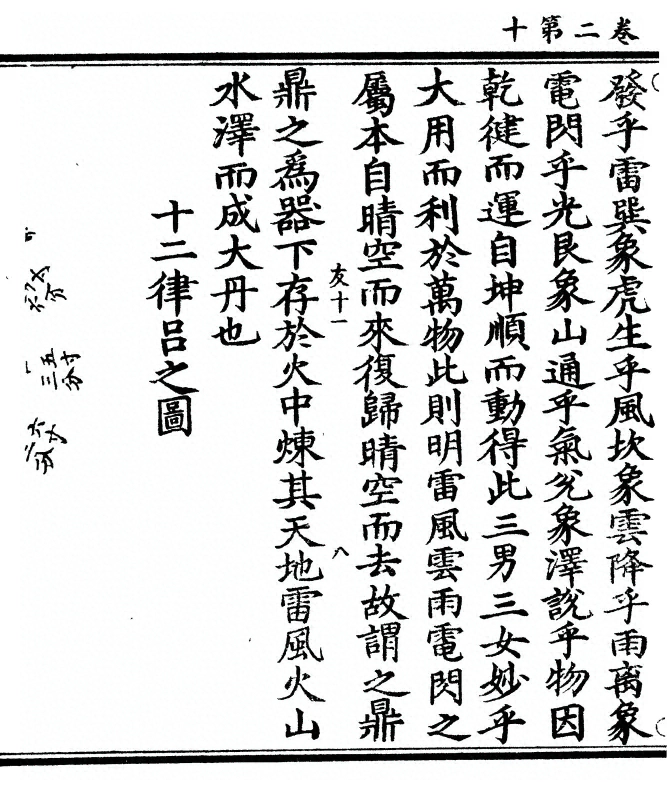 卷二第十
發乎雷巽象虎生乎風坎象雲降乎雨离象
電閃乎光艮象山通乎氣兊象澤說乎物因
乾健而運自坤順而動得此三男三女妙乎
大用而利於萬物此則明雷風雲雨電閃之
屬本自晴空而來復歸晴空而去故謂之鼎
友十一
八
鼎之爲器下存於火中煉其天地雷風火山
水澤而成大丹也
十二律呂之圖
五寸
三分